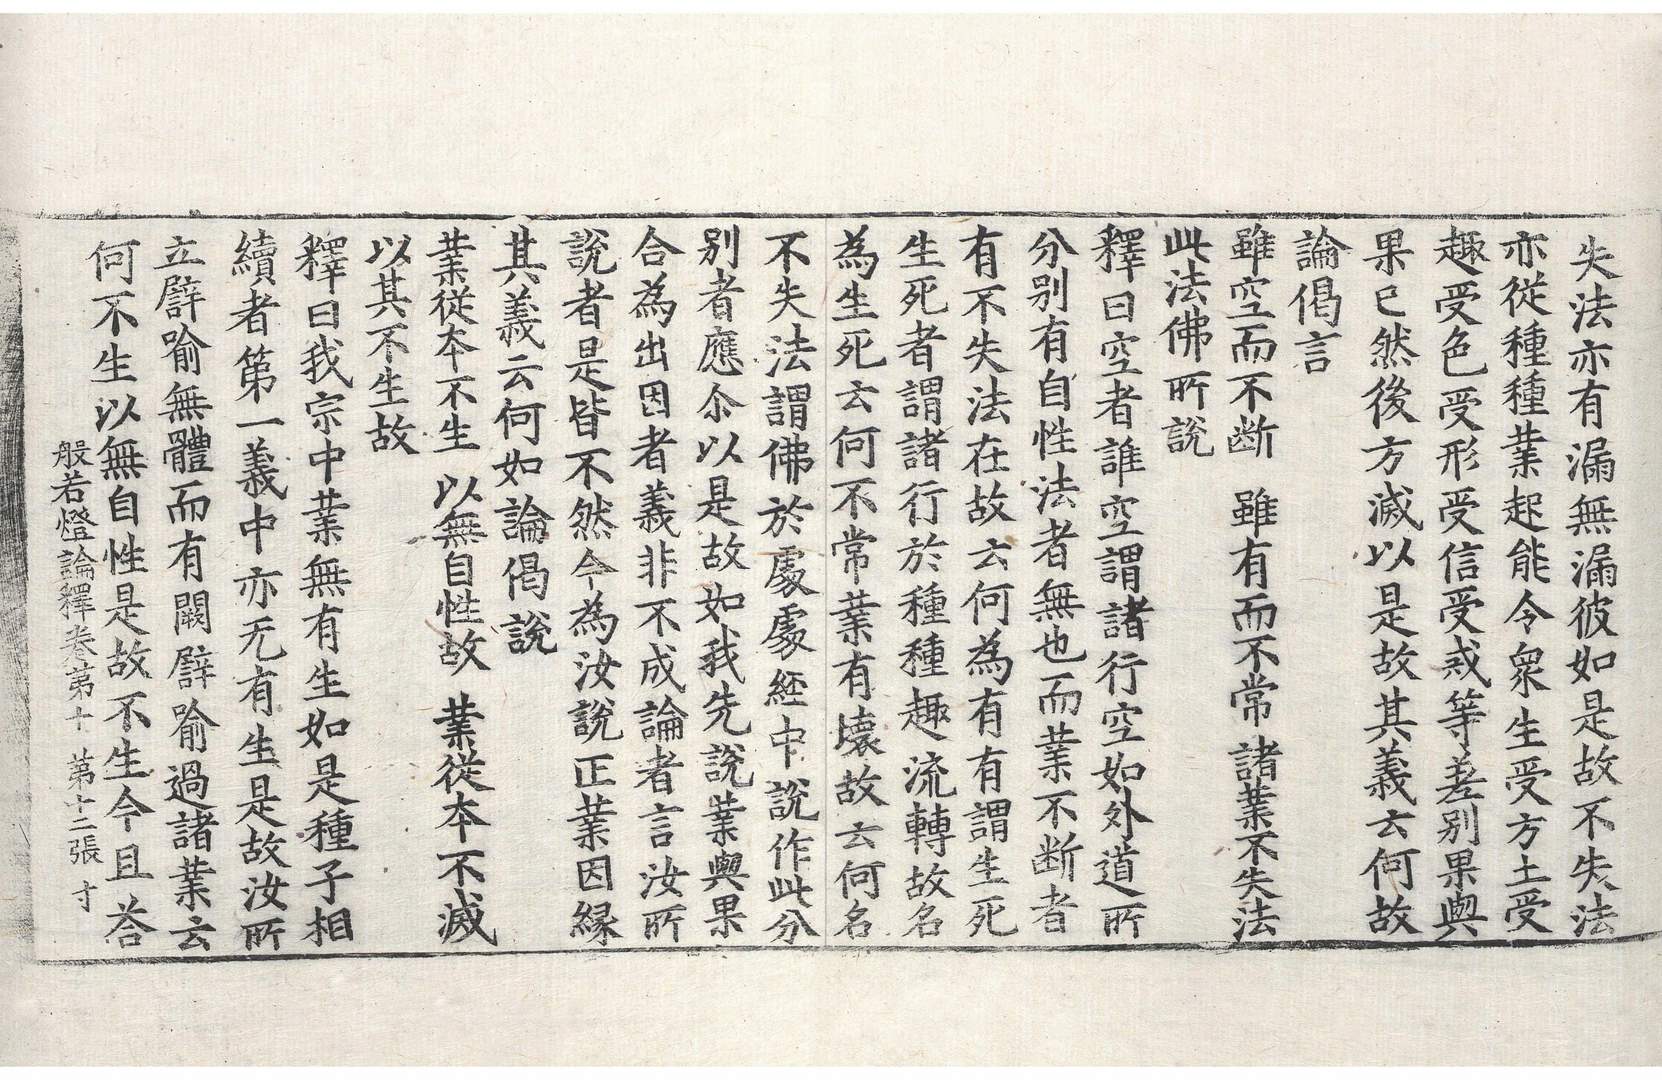 失法亦有漏無漏彼如是故不失法
亦從種種業起能令衆生受方土受
趣受色受形受信受戒等差別果與
果已然後方滅以是故其義云何故
論偈言
雖空而不断　雖有而不常　諸業不失法
此法佛所說
釋曰空者誰空謂諸行空如外道所
分別有自性法者無也而業不断者
有不失法在故云何為有有謂生死
生死者謂諸行於種種趣流轉故名
為生死云何不常業有壞故云何名
不失法謂佛於處處経中說作此分
別者應尒以是故如我先說業與果
合為出因者義非不成論者言汝所
說者是皆不然今為汝說正業因縁
其義云何如論偈說
業從本不生　以無自性故　業從本不滅
以其不生故
釋曰我宗中業無有生如是種子相
續者第一義中亦无有生是故汝所
立譬喻無體而有闕譬喻過諸業云
何不生以無自性是故不生今且荅
般若燈論釋卷第十　第十二張　寸